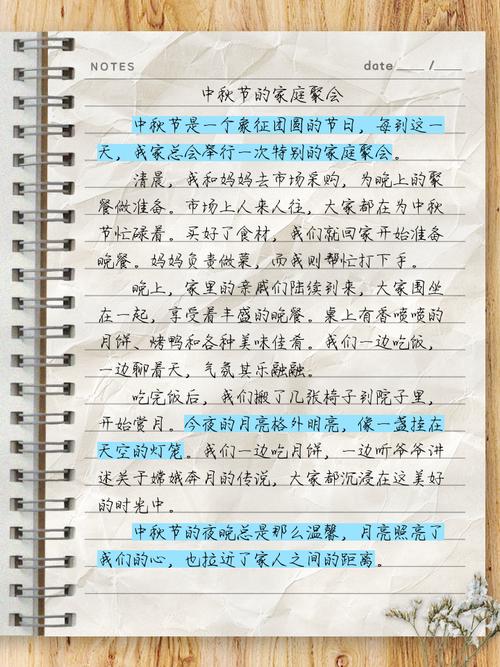 NOTES date / 
中秋节的家庭聚会
中秋节是一个象征团圆的节日，每到这一
天，我家总会举行一次特别的家庭聚会。
清晨，我和妈妈去市场采购，为晚上的聚
餐做准备。市场上人来人往，大家都在为中秋
节忙碌着。买好了食材，我们就回家开始准备
晚餐。妈妈负责做菜，而我则帮忙打下手。
晚上，家里的亲戚们陆续到来，大家围坐
在一起，享受着丰盛的晚餐。桌上有香喷喷的
月饼、烤鸭和各种美味佳肴。我们一边吃饭，
一边聊着天，气氛其乐融融。
吃完饭后，我们搬了几张椅子到院子里，
开始赏月。今夜的月亮格外明亮，像一盏挂在
天空的灯笼。我们一边吃月饼，一边听爷爷讲
述关于嫦娥奔月的传说，大家都沉浸在这美好
的时光中。
中秋节的夜晚总是那么温馨，月亮照亮了
我们的心，也拉近了家人之间的距离。